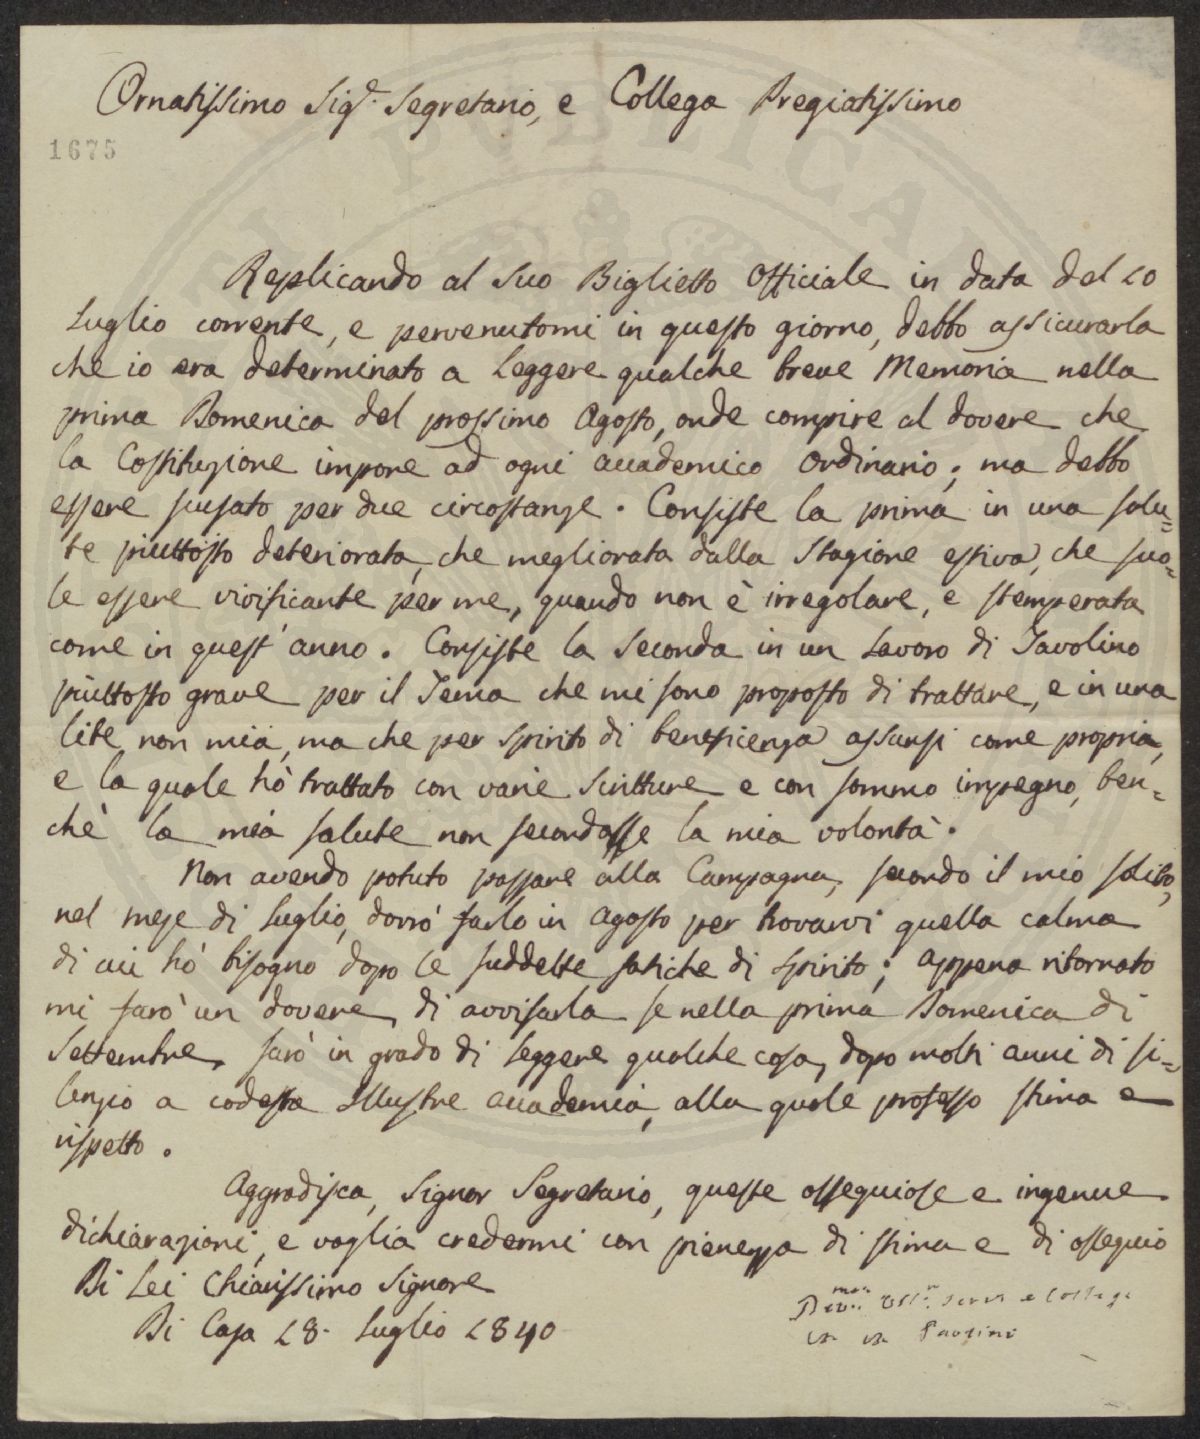 Ornatissimo Sig.r Segretario, e Collega Pregiatissimo
1675
Replicando al suo Biglietto Officiale in data del 10
Luglio corrente, e pervenutomi in questo giorno, debbo assicurarla
che io era determinato a Leggere qualche breve Memoria nella
prima Domenica del prossimo Agosto, onde compire al dovere che
la Costituzione impone ad ogni accademico Ordinario; ma debbo
essere scusato per due circostanze. Consiste la prima in una salu=
te piuttosto deteriorata, che megliorata dalla Stagione estiva, che suo=
le essere vivificante per me, quando non è irregolare, e stemperata
come in quest'anno. Consiste la Seconda in un Lavoro di Tavolino
piuttosto grave per il Tema che mi sono proposto di trattare, e in una
lite, non mia, ma che per spirito di beneficenza assunsi come propria,
e la quale hò trattato con varie Scritture, e con sommo impegno, ben=
chè la mia salute non secondasse la mia volontà.
Non avendo potuto passare alla Campagna, secondo il mio solito,
nel mese di Luglio, dovrò farlo in Agosto per trovarvi quella calma
di cui hò bisogno dopo le suddette fatiche di Spirito; appena ritornato
mi farò un dovere di avvisarla se nella prima Domenica di
Settembre sarò in grado di Leggere qualche cosa, dopo molti anni di si=
lenzio a codesta Illustre accademia, alla quale professo stima e
rispetto.
Aggradisca, Signor Segretario, queste ossequiose e ingenue
dichiarazioni, e voglia credermi con pienezza di stima e di ossequio
Di Lei Chiarissimo Signore
Di Casa 18. Luglio 1840
Dev.mo Obb.o Serv. e Collega
Paolini